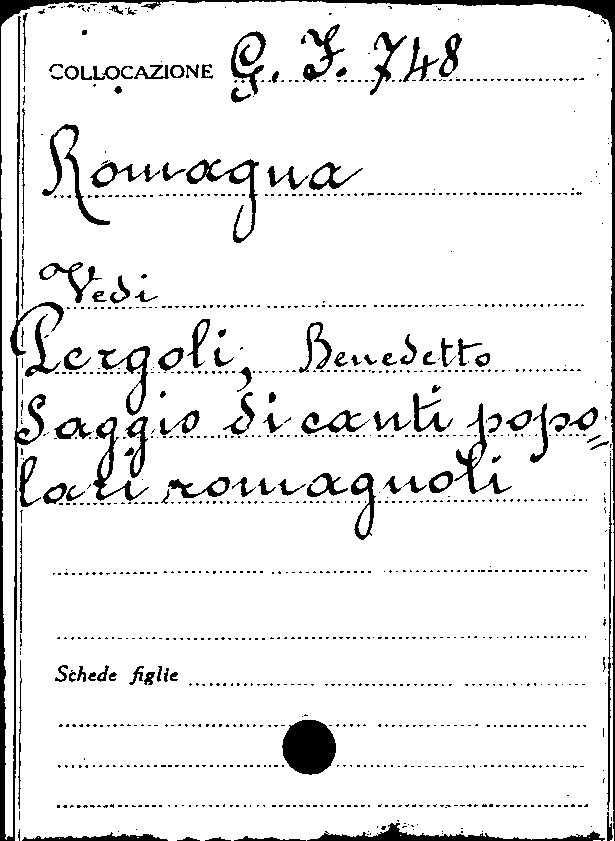 COLLOCAZIONE G. I. 748
Romagna
Vedi
Pergoli, Benedetto
Saggio di canti popo=
lari romagnoli
Schede figlie